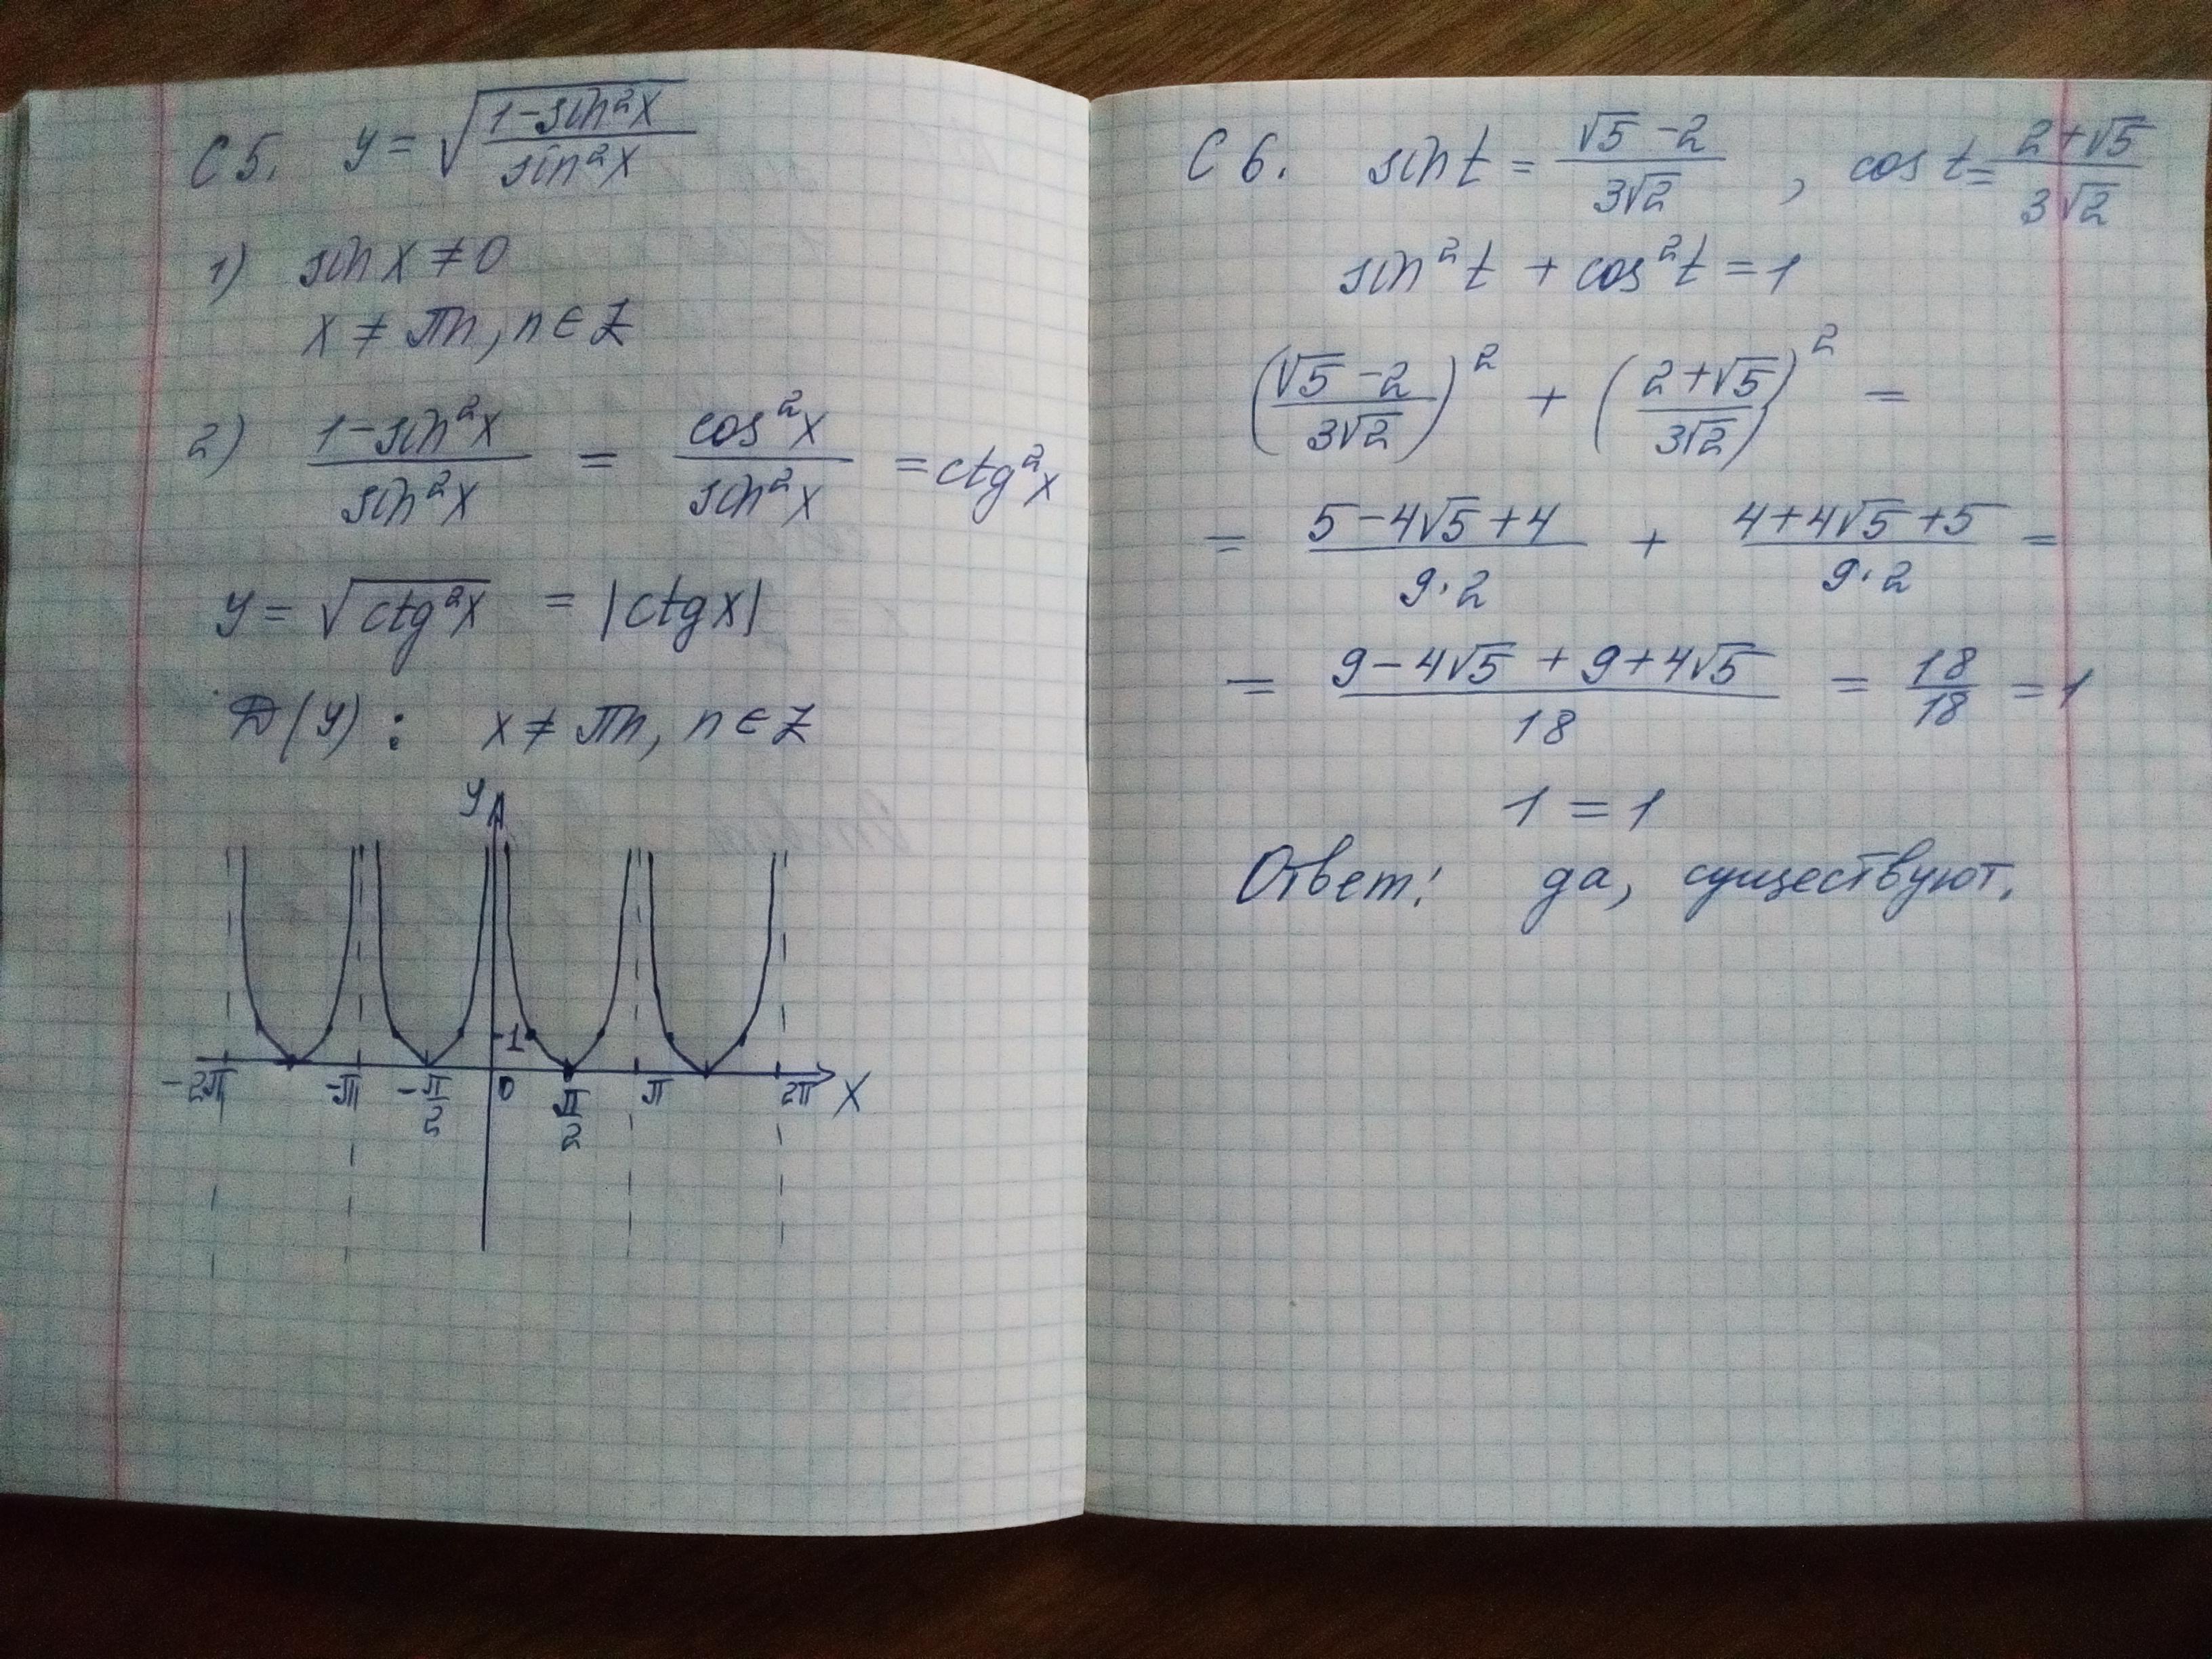 С 5. y = √((1-sin²x)/(sin²x))
1) sin x ≠ 0
x ≠ πn, n ∈ Z
2) (1-sin²x)/(sin²x) = (cos²x)/(sin²x) = ctg²x
y = √(ctg²x) = |ctg x|
D(y): x ≠ πn, n ∈ Z
y
1
-2π -π -π/2 0 π/2 π 2π x
С 6. sin t = (√5 - 2)/(3√2), cos t = (2+√5)/(3√2)
sin²t + cos²t = 1
((√5 - 2)/(3√2))² + ((2+√5)/(3√2))² =
= (5-4√5+4)/(9·2) + (4+4√5+5)/(9·2) =
= (9-4√5+9+4√5)/18 = 18/18 = 1
1 = 1
Ответ: да, существуют.